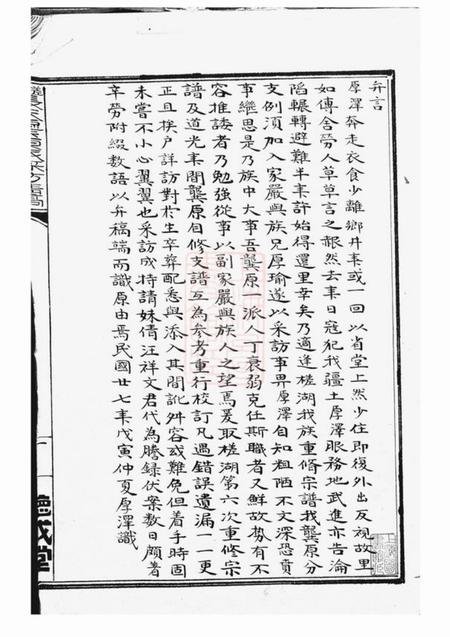 弁言
厚澤奔走衣食少離鄉井來或一回以省堂上然少住即復外出反視故里
如傳舍勞人草草言之赧然去年日寇犯我疆土厚澤服務地武進亦告淪
陷輾轉避難半年許始得還里幸矣乃適逢槎湖我族重脩宗譜我龔原分
支例須加入家嚴與族兄厚瑜遂以采訪事畀厚澤自知粗陋不文深恐賁
事繼思是乃族中大事吾龔原一派人丁衰弱克任斯職者又鮮故勢有不
容推諉者乃勉強從事以副家嚴與族人之望焉爰取槎湖第六次重修宗
譜及道光年間龔原自修支譜互為參考重行校訂凡遇錯誤遺漏一一更
正且挨戶詳訪對於生卒葬配悉與添入其間訛舛容或難免但着手時固
未嘗不小心翼翼也采訪成持請妹倩汪祥文君代為謄錄伏案數日頗著
辛勞附綴數語以弁稿端而識原由焉民國廿七年戊寅仲夏厚澤識